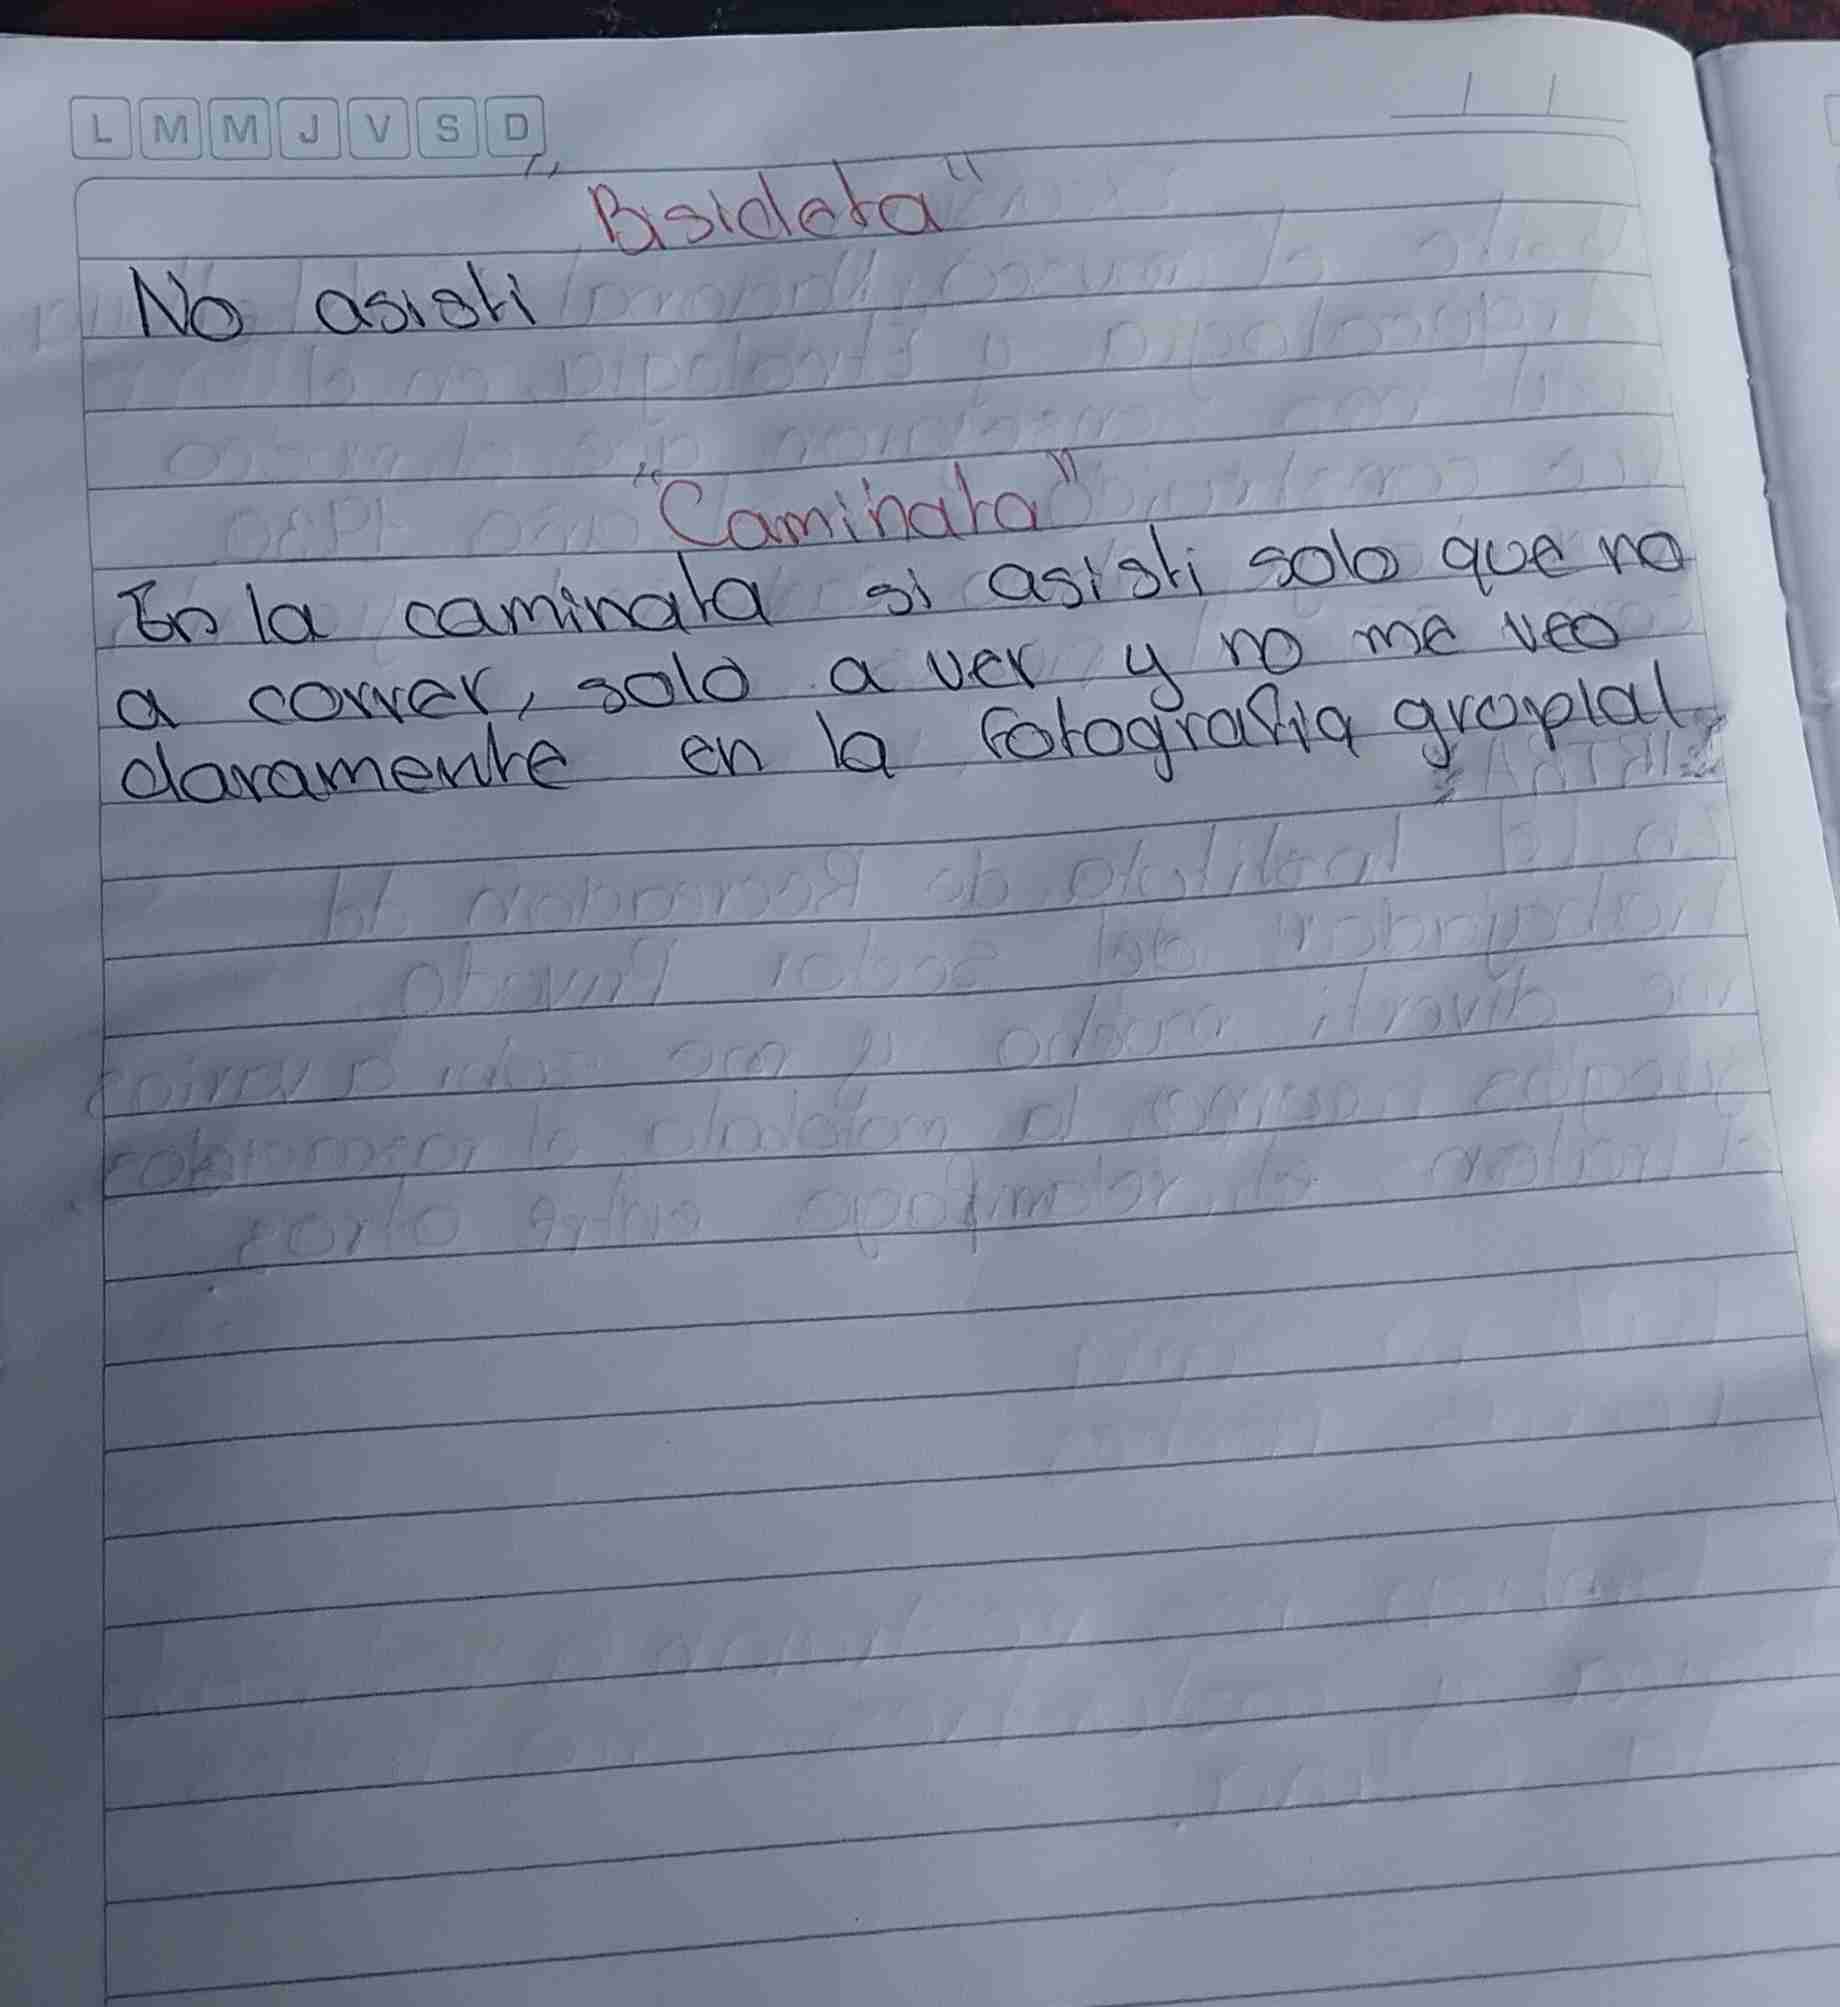 L M M J V S D
"Bisicleta"
No asisti
"Caminata"
En la caminata si asisti solo que no
a correr, solo a ver y no me veo
claramente en la fotografia